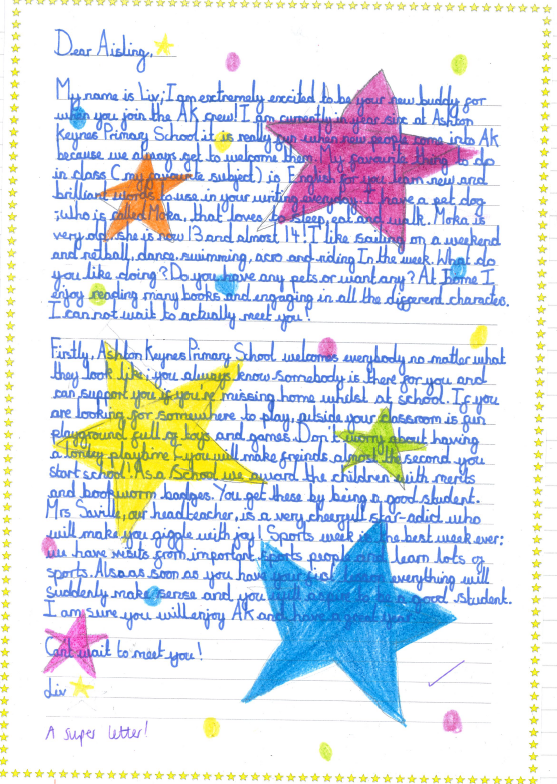 Dear Aisling,
My name is Liv; I am extremely excited to be your new buddy for
when you join the AK crew! I am currently in year six at Ashton
Keynes Primary School it is really fun when new people come into AK
because we always get to welcome them. My favourite thing to do
in class (my favourite subject) is English for you learn new and
brilliant words to use in your writing everyday. I have a pet dog
;who is called Moka, that loves to sleep, eat and walk. Moka is
very old, she is now 13 and almost 14! I like sailing on a weekend
and netball, dance, swimming, acro and riding In the week. What do
you like doing? Do you have any pets or want any? At home I
enjoy reading many books and engaging in all the different characters.
I can not wait to actually meet you!
Firstly, Ashton Keynes Primary School welcomes everybody no matter what
they look like; you always know somebody is there for you and
can support you if you're missing home whilst at school. If you
are looking for somewhere to play, outside your classroom is fun
playground full of toys and games. Don't worry about having
a lonely playtime - you will make freinds almost the second you
start school! As a School we award the children with merits
and bookworm badges. You get these by being a good student.
Mrs Saville, our headteacher, is a very cheerful star-adict who
will make you giggle with joy! Sports week is the best week ever;
we have visits from important sports people and learn lots of
sports. Also as soon as you have your first lesson everything will
suddenly make sense and you will aspire to be a good student.
I am sure you will enjoy AK and have a great year.
Can't wait to meet you!
Liv
A super letter!